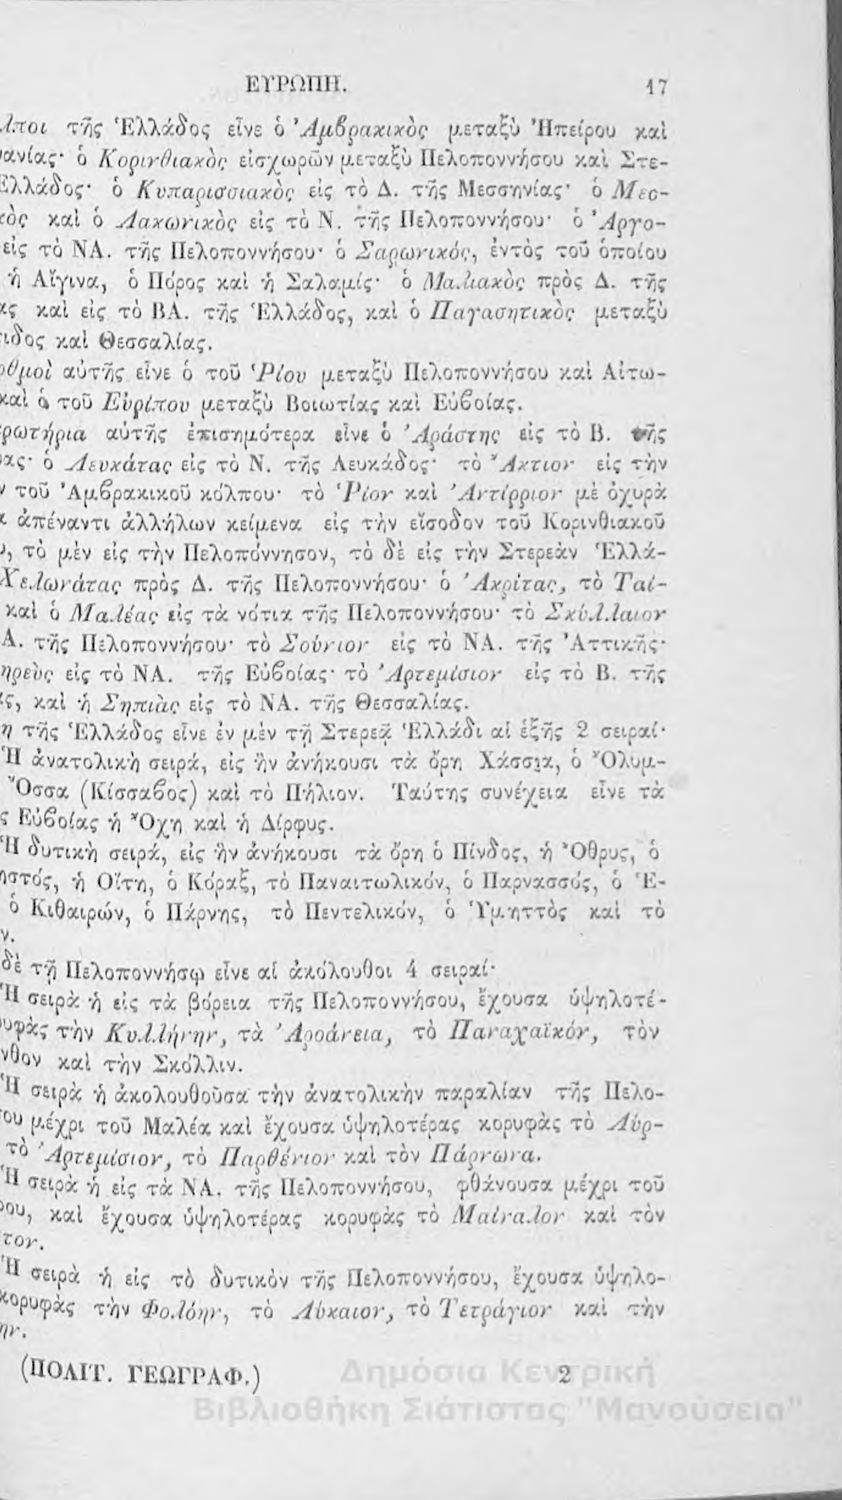 ΕΥΡΩΠΗ. 17
λποι τῆς Ἑλλάδος εἶνε ὁ Ἀμβρακικὸς μεταξὺ Ἠπείρου καὶ
νανίας· ὁ Κορινθιακὸς εἰσχωρῶν μεταξὺ Πελοποννήσου καὶ Στε-
Ἑλλάδος· ὁ Κυπαρισσιακὸς εἰς τὸ Δ. τῆς Μεσσηνίας· ὁ Μεσ-
κὸς καὶ ὁ Λακωνικὸς εἰς τὸ Ν. τῆς Πελοποννήσου· ὁ Ἀργο-
εἰς τὸ ΝΑ. τῆς Πελοποννήσου· ὁ Σαρωνικός, ἐντὸς τοῦ ὁποίου
ἡ Αἴγινα, ὁ Πόρος καὶ ἡ Σαλαμίς· ὁ Μαλιακὸς πρὸς Δ. τῆς
ας καὶ εἰς τὸ ΒΑ. τῆς Ἑλλάδος, καὶ ὁ Παγασητικὸς μεταξὺ
ιδος καὶ Θεσσαλίας.
ρθμοὶ αὐτῆς εἶνε ὁ τοῦ Ῥίου μεταξὺ Πελοποννήσου καὶ Αἰτω-
καὶ ὁ τοῦ Εὐρίπου μεταξὺ Βοιωτίας καὶ Εὐβοίας.
ρωτήρια αὐτῆς ἐπισημότερα εἶνε ὁ Ἀράστης εἰς τὸ Β. τῆς
ας· ὁ Λευκάτας εἰς τὸ Ν. τῆς Λευκάδος· τὸ Ἄκτιον εἰς τὴν
ν τοῦ Ἀμβρακικοῦ κόλπου· τὸ Ῥίον καὶ Ἀντίρριον μὲ ὀχυρὰ
α ἀπέναντι ἀλλήλων κείμενα εἰς τὴν εἴσοδον τοῦ Κορινθιακοῦ
υ, τὸ μὲν εἰς τὴν Πελοπόννησον, τὸ δὲ εἰς τὴν Στερεὰν Ἑλλά-
Χελωνάτας πρὸς Δ. τῆς Πελοποννήσου· ὁ Ἀκρίτας, τὸ Ταί-
καὶ ὁ Μαλέας εἰς τὰ νότια τῆς Πελοποννήσου· τὸ Σκύλλαιον
Α. τῆς Πελοποννήσου· τὸ Σούνιον εἰς τὸ ΝΑ. τῆς Ἀττικῆς·
ηρεὺς εἰς τὸ ΝΑ. τῆς Εὐβοίας· τὸ Ἀρτεμίσιον εἰς τὸ Β. τῆς
ς, καὶ ἡ Σηπιὰς εἰς τὸ ΝΑ. τῆς Θεσσαλίας.
η τῆς Ἑλλάδος εἶνε ἐν μὲν τῇ Στερεᾷ Ἑλλάδι αἱ ἑξῆς 2 σειραί·
Ἡ ἀνατολικὴ σειρά, εἰς ἣν ἀνήκουσι τὰ ὄρη Χάσσια, ὁ Ὄλυμ-
Ὄσσα (Κίσσαβος) καὶ τὸ Πήλιον. Ταύτης συνέχεια εἶνε τὰ
ς Εὐβοίας ἡ Ὄχη καὶ ἡ Δίρφυς.
Ἡ δυτικὴ σειρά, εἰς ἣν ἀνήκουσι τὰ ὄρη ὁ Πίνδος, ἡ Ὄθρυς, ὁ
ηστός, ἡ Οἴτη, ὁ Κόραξ, τὸ Παναιτωλικόν, ὁ Παρνασσός, ὁ Ἑ-
ὁ Κιθαιρών, ὁ Πάρνης, τὸ Πεντελικόν, ὁ Ὑμηττὸς καὶ τὸ
ν.
δὲ τῇ Πελοποννήσῳ εἶνε αἱ ἀκόλουθοι 4 σειραί·
Ἡ σειρὰ ἡ εἰς τὰ βόρεια τῆς Πελοποννήσου, ἔχουσα ὑψηλοτέ-
υφὰς τὴν Κυλλήνην, τὰ Ἀροάνεια, τὸ Παναχαϊκόν, τὸν
νθον καὶ τὴν Σκόλλιν.
Ἡ σειρὰ ἡ ἀκολουθοῦσα τὴν ἀνατολικὴν παραλίαν τῆς Πελο-
ου μέχρι τοῦ Μαλέα καὶ ἔχουσα ὑψηλοτέρας κορυφὰς τὸ Λύρ-
τὸ Ἀρτεμίσιον, τὸ Παρθένιον καὶ τὸν Πάρνωνα.
Ἡ σειρὰ ἡ εἰς τὰ ΝΑ. τῆς Πελοποννήσου, φθάνουσα μέχρι τοῦ
ου, καὶ ἔχουσα ὑψηλοτέρας κορυφὰς τὸ Μαίναλον καὶ τὸν
τον.
Ἡ σειρὰ ἡ εἰς τὸ δυτικὸν τῆς Πελοποννήσου, ἔχουσα ὑψηλο-
κορυφὰς τὴν Φολόην, τὸ Λύκαιον, τὸ Τετράγιον καὶ τὴν
ην.
(ΠΟΛΙΤ. ΓΕΩΓΡΑΦ.) 2
Δημόσια Κεντρική
Βιβλιοθήκη Σιάτιστας "Μανούσεια"